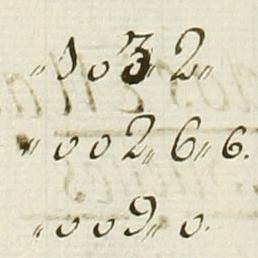 "1032"
"002"6"6.
"009"0.